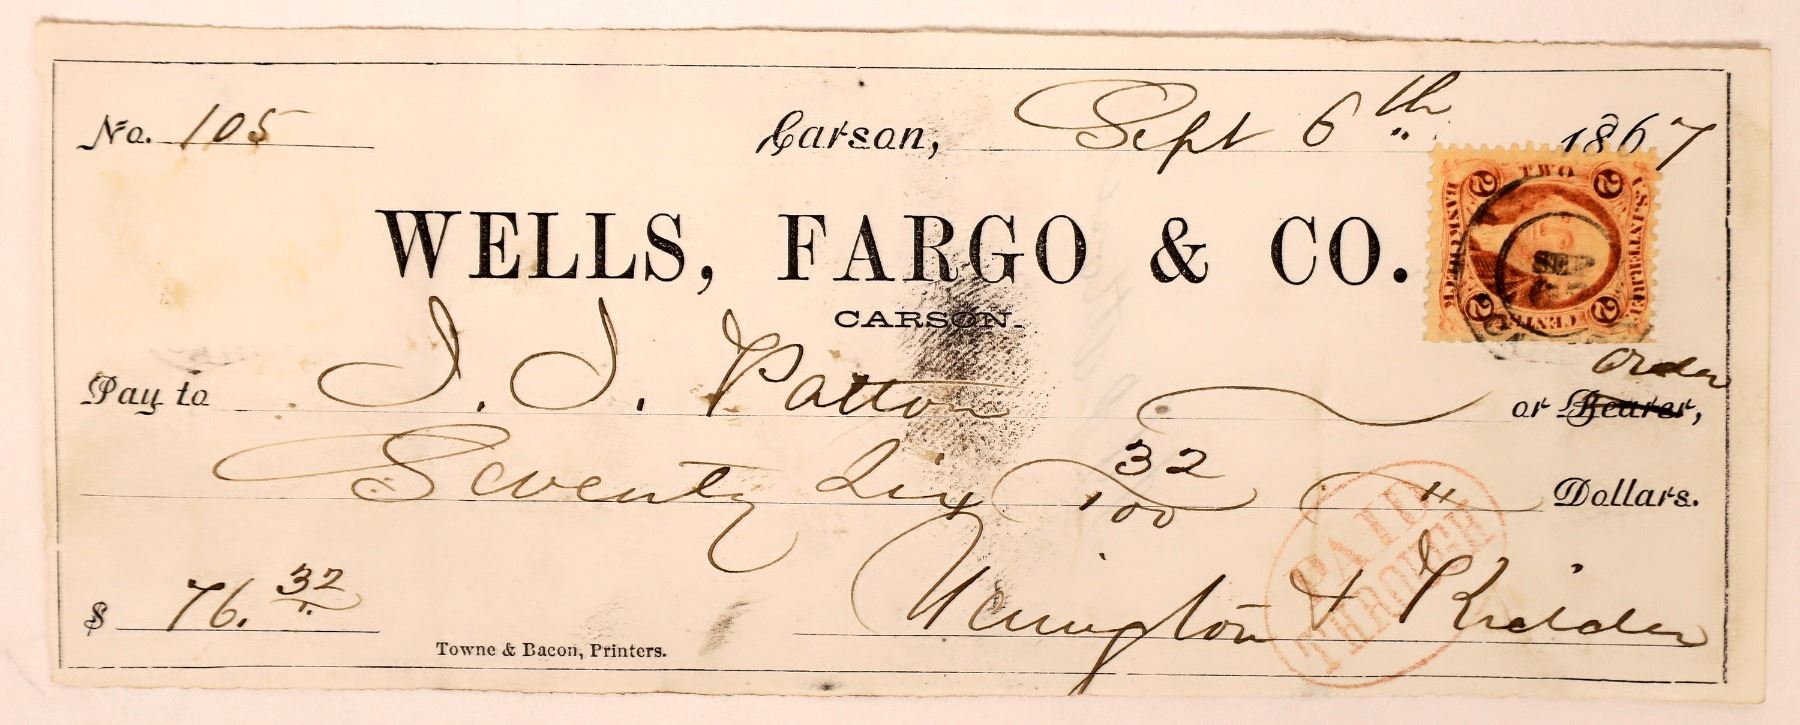 No. 105 Carson, Sept 6th 1867
WELLS, FARGO & CO.
CARSON.
Pay to J. J. Patton or Bearer, order
Seventy Six 32/100 " Dollars.
$ 76. 32
& Kidder
Towne & Bacon, Printers.
U.S. INTER. REV.
TWO
CENTS
BANK CHECK
2 2 2 2
SEP
PAID
THROUER